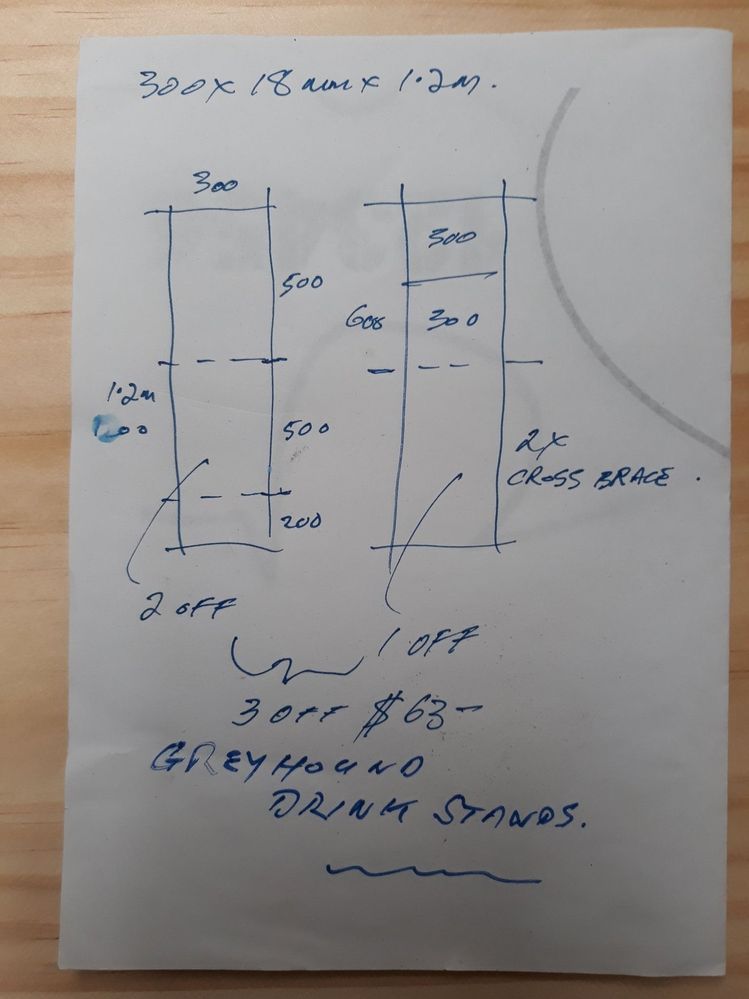 300 x 18mm x 1.2m.
300
500
1.2m
500
200
2 OFF
300
600
300
2X
CROSS BRACE.
1 OFF
3 OFF $63-
GREYHOUND
DRINK STANDS.